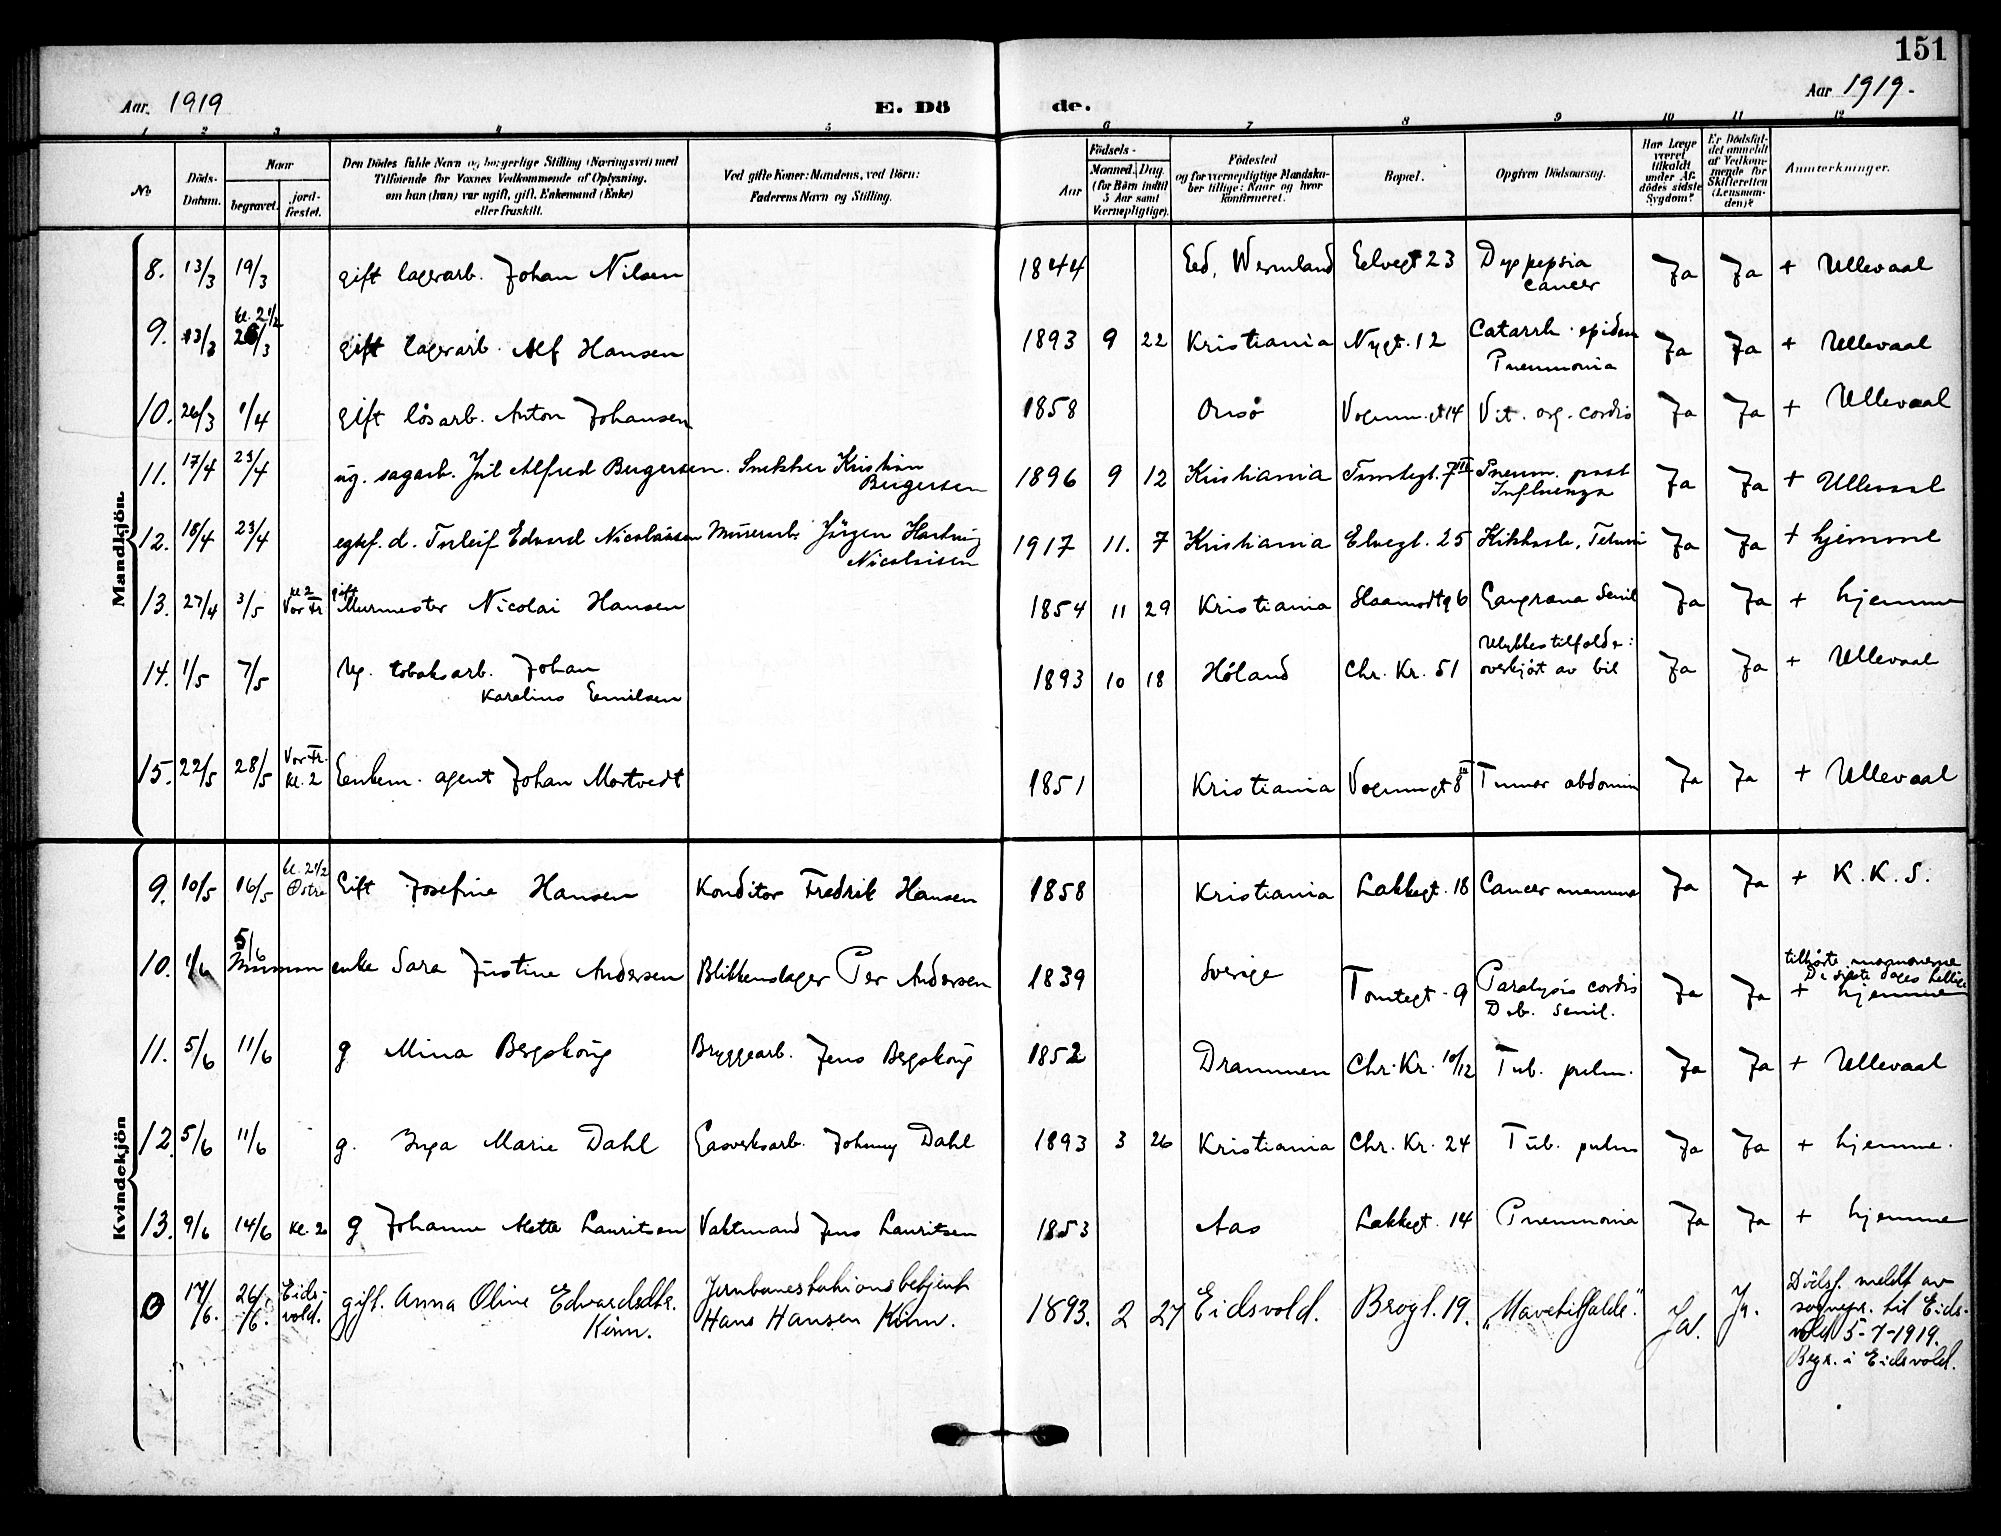 151
Aar 1919
E. Dö
de.
Aar 1919.
1 2 3 4 5 6 7 8 9 10 11 12
No
Döds-Datum.
Naar
begravet.
jord-fæstet.
Den Dödes fulde Navn og borgerlige Stilling (Næringsvei) med
Tilføiende for Voxnes Vedkommende af Oplysning,
om han (hun) var ugift, gift, Enkemand (Enke)
eller fraskilt.
Ved gifte Koner: Mandens, ved Börn:
Faderens Navn og Stilling.
Födsels-
Aar
Maaned. Dag.
(for Börn indtil
5 Aar samt
Værnepligtige).
Födested
og for værnepligtige Mandska-
ber tillige: Naar og hvor
konfirmeret.
Bopæl.
Opgiven Dödsaarsag.
Har Læge
været
tilkaldt
under Af-
dödes sidste
Sygdom?
Er Dödsfal-
det anmeldt
af Vedkom-
mende for
Skifteretten
(Lensman-
den)?
Anmerkninger.
Mandkjön
8. 13/3 19/3 gift lagerarb. Johan Nilsen 1844 Eed, Wermland Eelvegt 23 Dyspepsia cancer Ja Ja + Ullevaal
9. 13/3 kl. 2 1/2 /3 gift lagerarb. Alf Hansen 1893 9 22 Kristiania Nygt. 12 Catarrh. epidem Pneumonia Ja Ja + Ullevaal
10. 26/3 1/4 gift lösarb. Anton Johansen 1858 Onsö Vognm.gt 14 Vit. org. cordis Ja Ja + Ullevaal
11. 17/4 23/4 ug. sagarb. Jul Alfred Bergersen. Snekker Kristian Bergersen 1896 9 12 Kristiania Tomtegt. 7 III Pneum. post Influenza Ja Ja + Ullevaal
12. 18/4 23/4 egtef. d. Torleif Edvard Nicolaisen Murerarb. Jörgen Hartvig Nicolaisen 1917 11. 7 Kristiania Elvegt. 25 Kikhoste, Ja Ja + hjemme
13. 27/4 3/5 kl 2 Vor Fr gift Murmester Nicolai Hansen 1854 11 29 Kristiania 6 Gangræna Senil Ja Ja + hjemme
14. 1/5 7/5 Ug. tobaksarb. Johan Karelius Emilsen 1893 10 18 Höland Chr. Kr. 51 Ulykkestilfælde: overkjört av bil Ja Ja + Ullevaal
15. 22/5 28/5 Vor Fr. kl. 2 Enkem. agent Johan Mortvedt 1851 Kristiania Vognmgt 8 III Tumor abdomin Ja Ja + Ullevaal
Kvindekjön
9. 10/5 16/5 kl. 2 1/2 Østre Gift Josefine Hansen Konditor Fredrik Hansen 1858 Kristiania Lakkegt. 18 Cancer mammae Ja Ja + K. K. S.
10. 1/6 5/6 Mormon enke Sara Justine Andersen Blikkenslager Per Andersen 1839 Sverige Tomtegt. 9 Paralysis cordis Deb. senil. Ja Ja tilhörte mormonerne De sidste dages hellige + hjemme
11. 5/6 11/6 g Mina Bergskaug Bryggearb. Jens Bergskaug 1852 Drammen Chr. Kr. 10/12 Tub. pulm. Ja Ja + Ullevaal
12. 5/6 11/6 g. Inga Marie Dahl Gasverksarb. Johnny Dahl 1893 3 26 Kristiania Chr. Kr. 24 Tub. pulm Ja Ja + hjemme.
13. 9/6 14/6 kl. 2 g Johanne Mette Lauritsen Vaktmand Jens Lauritsen 1853 Aas Lakkegt. 14 Pneumonia Ja Ja + hjemme
0 17/6. 26/6. Eids-vold. gift. Anna Oline Edvardsdtr. Kinn. Jernbanestationsbetjent Hans Hansen Kinn. 1893. 2 27 Eidsvold. Brogt. 19. "Mavetilfælde". Ja. Ja. Dödsf. meldt av
sognepr. til Eids-
vold 5-7-1919.
Begr. i Eidsvold.